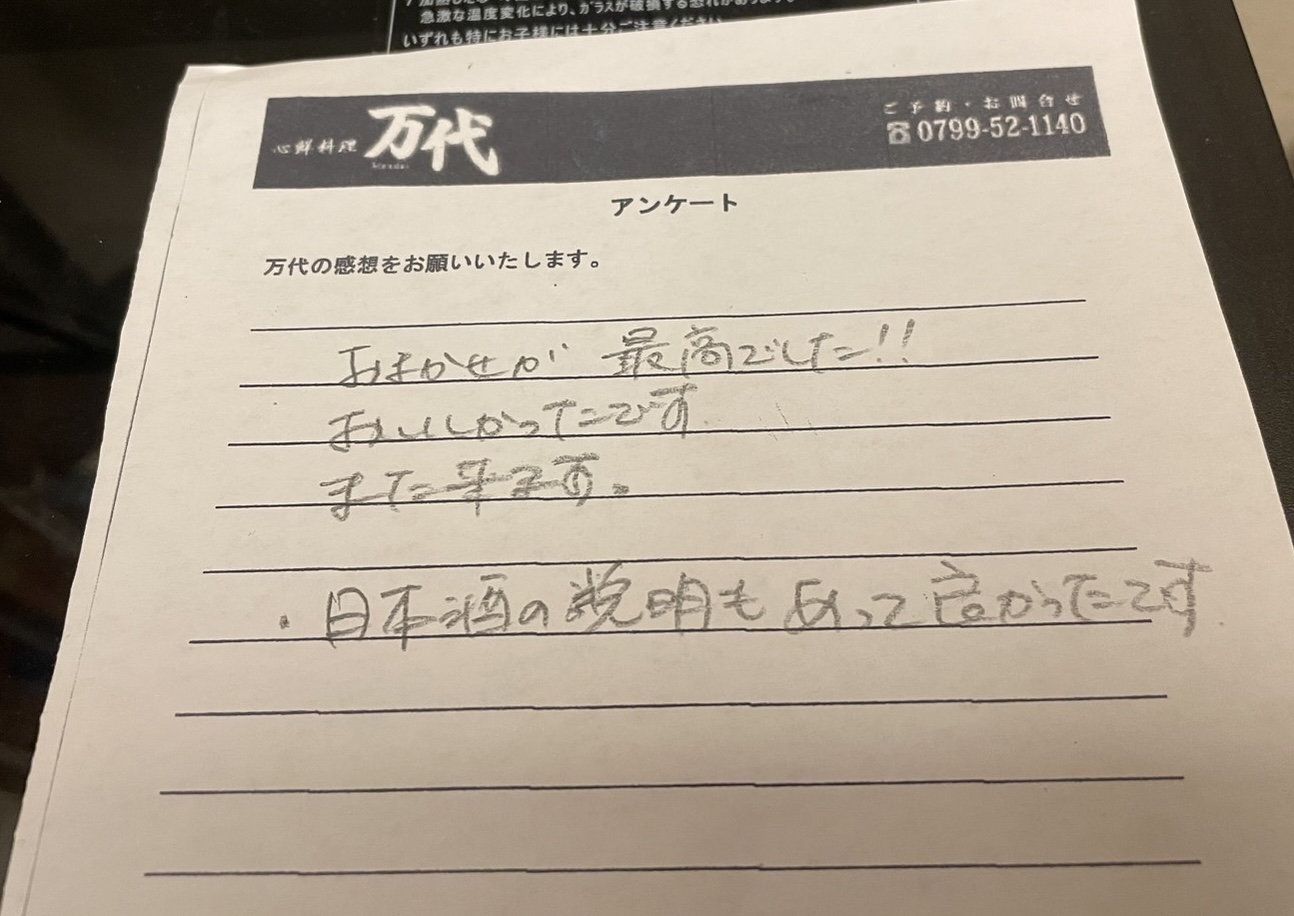 急激な温度変化により、ガラスが破損する恐れがあります。
いずれも特にお子様には十分ご注意ください
心鮮料理 万代
ご予約・お問合せ
☎0799-52-1140
アンケート
万代の感想をお願いいたします。
おまかせが 最高でした!!
おいしかったです
また来ます。
・日本酒の説明もあって良かったです